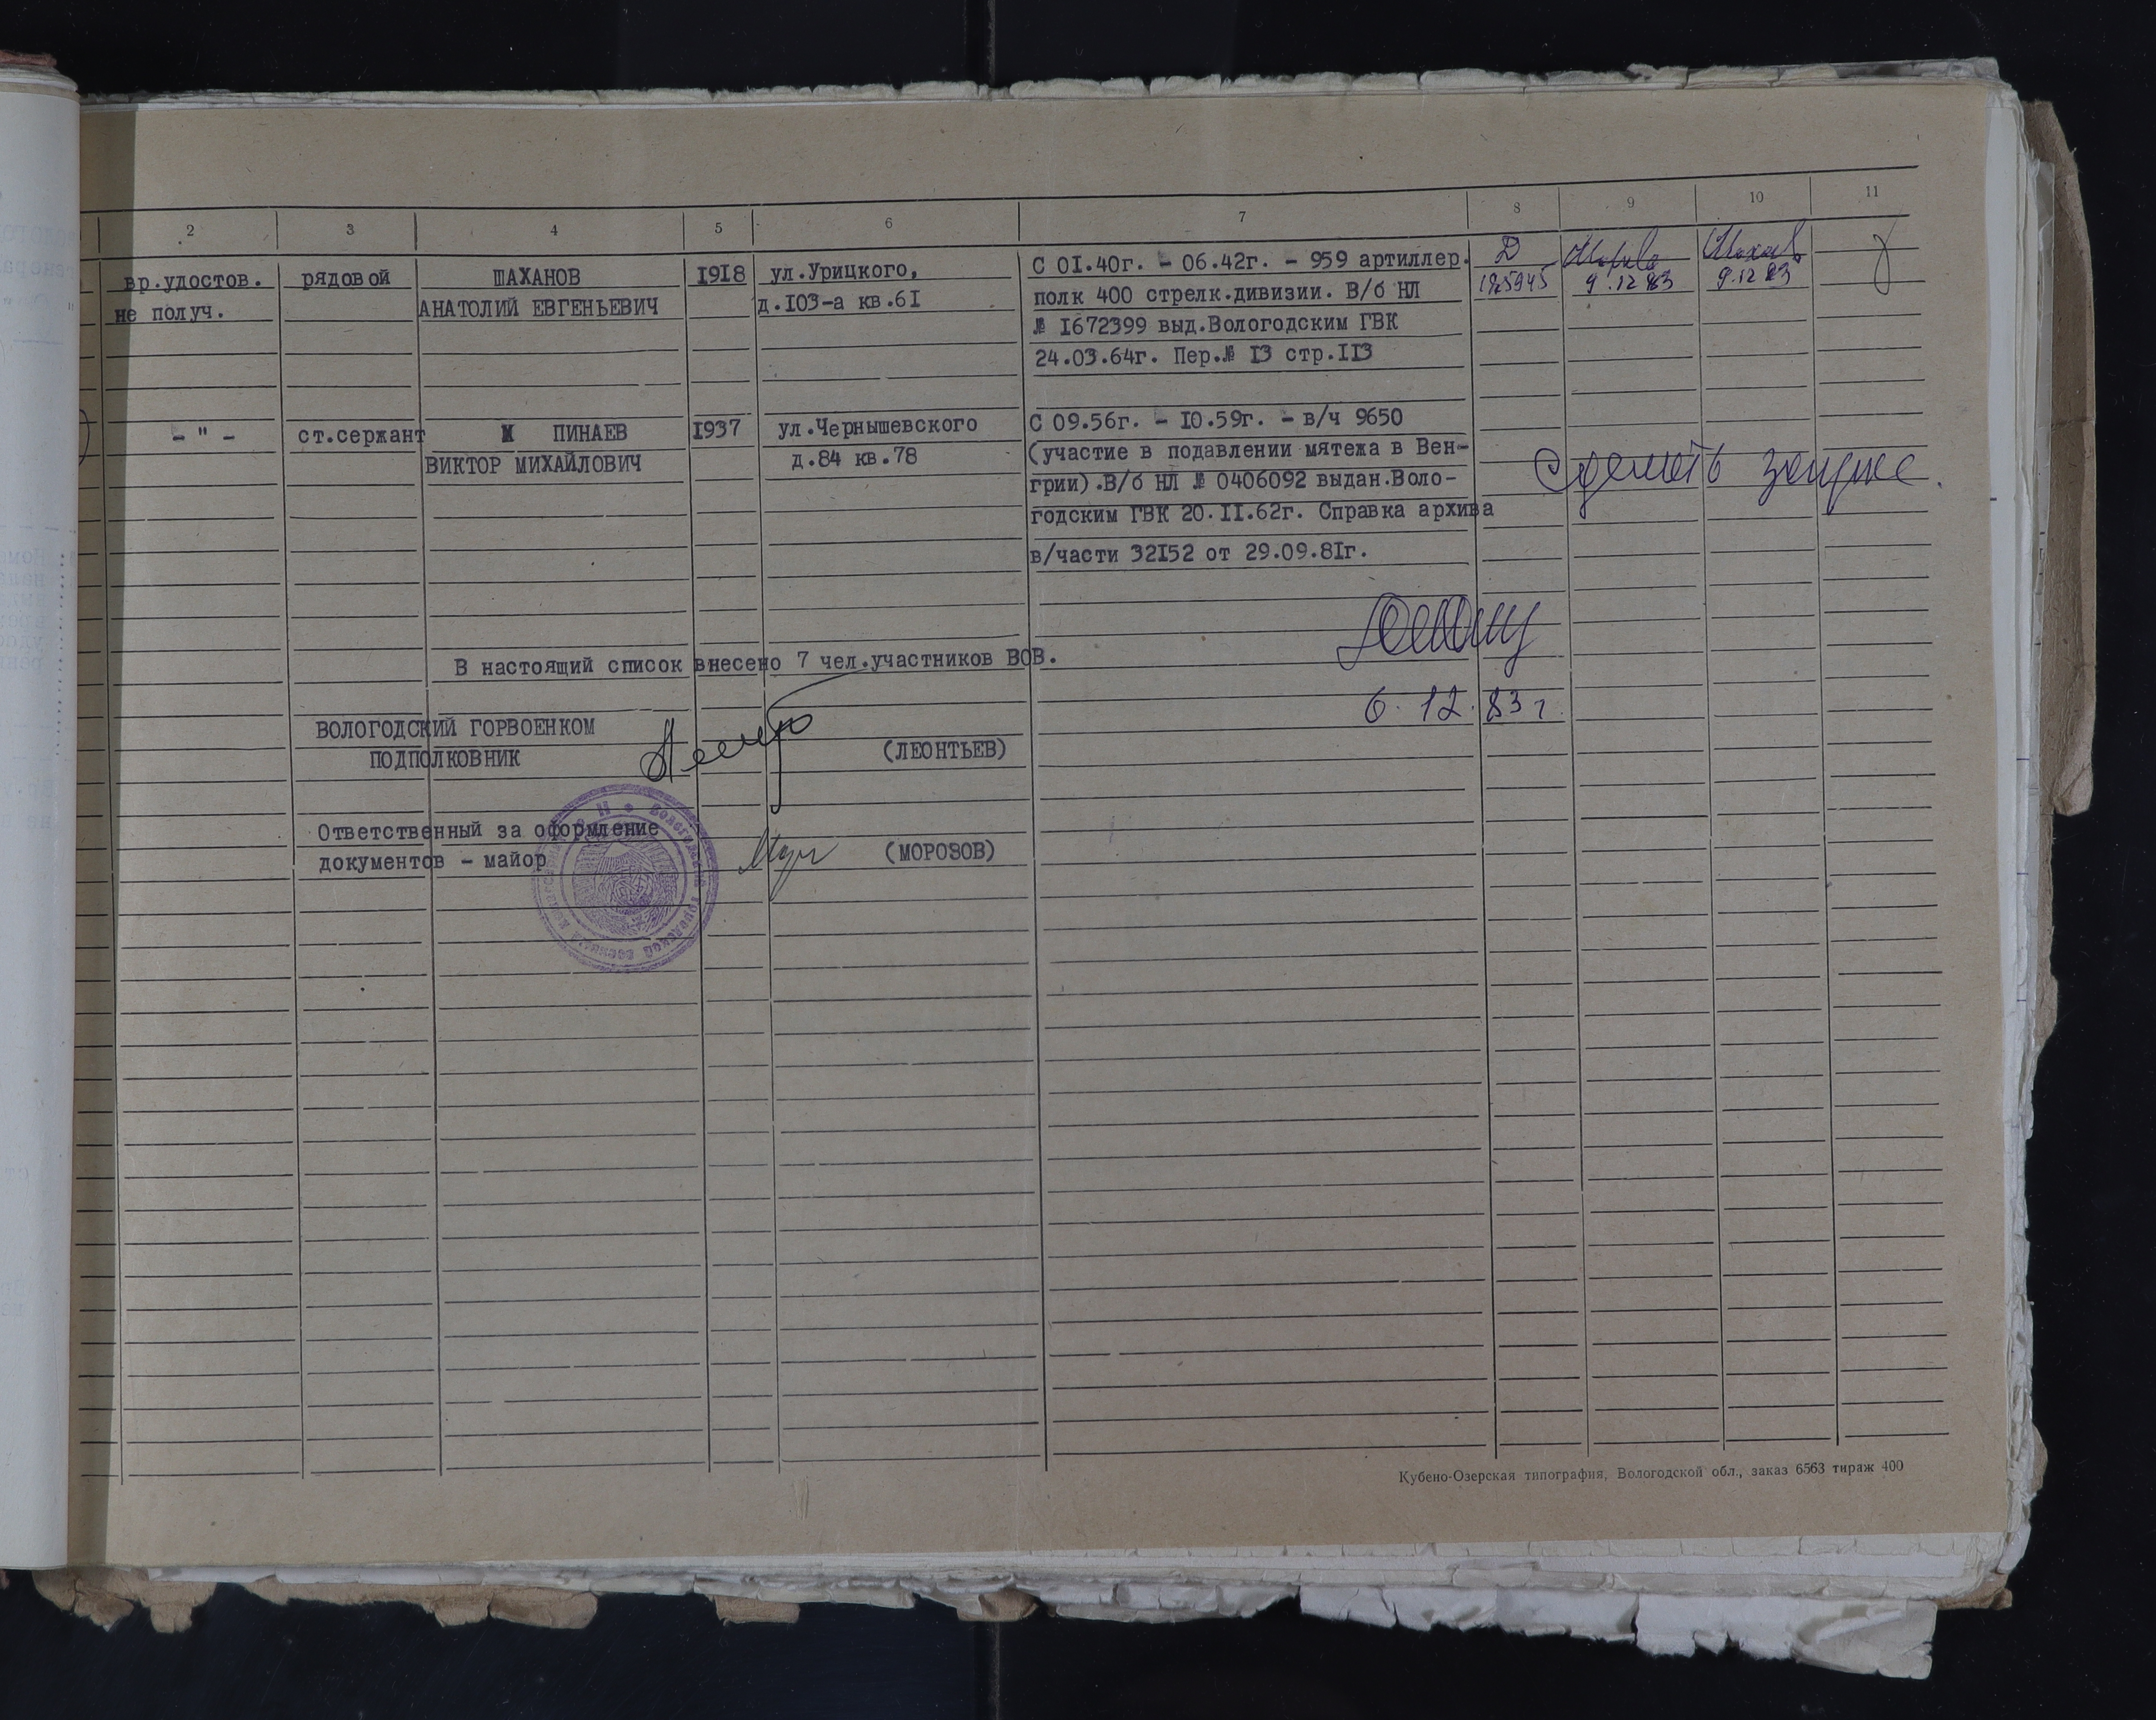 2 3 4 5 6 7 8 9 10 11
вр.удостов. рядовой ШАХАНОВ 1918 ул.Урицкого, С 01.40г. - 06.42г. - 959 артиллер. Д
не получ. АНАТОЛИЙ ЕВГЕНЬЕВИЧ д.103-а кв.61 полк 400 стрелк.дивизии. В/б НЛ 9.12 83 9.12 83
№ 1672399 выд.Вологодским ГВК
24.03.64г. Пер.№ 13 стр.113
- " - ст.сержант ПИНАЕВ 1937 ул.Чернышевского С 09.56г. - 10.59г. - в/ч 9650
ВИКТОР МИХАЙЛОВИЧ д.84 кв.78 (участие в подавлении мятежа в Вен-
грии).В/б НЛ № 0406092 выдан.Воло-
Сделать
годским ГВК 20.11.62г. Справка архива
в/части 32152 от 29.09.81г.
В настоящий список внесено 7 чел.участников ВОВ.
6.12.83г
ВОЛОГОДСКИЙ ГОРВОЕНКОМ
ПОДПОЛКОВНИК (ЛЕОНТЬЕВ)
Ответственный за оформление
документов - майор (МОРОЗОВ)
Кубено-Озерская типография, Вологодской обл., заказ 6563 тираж 400